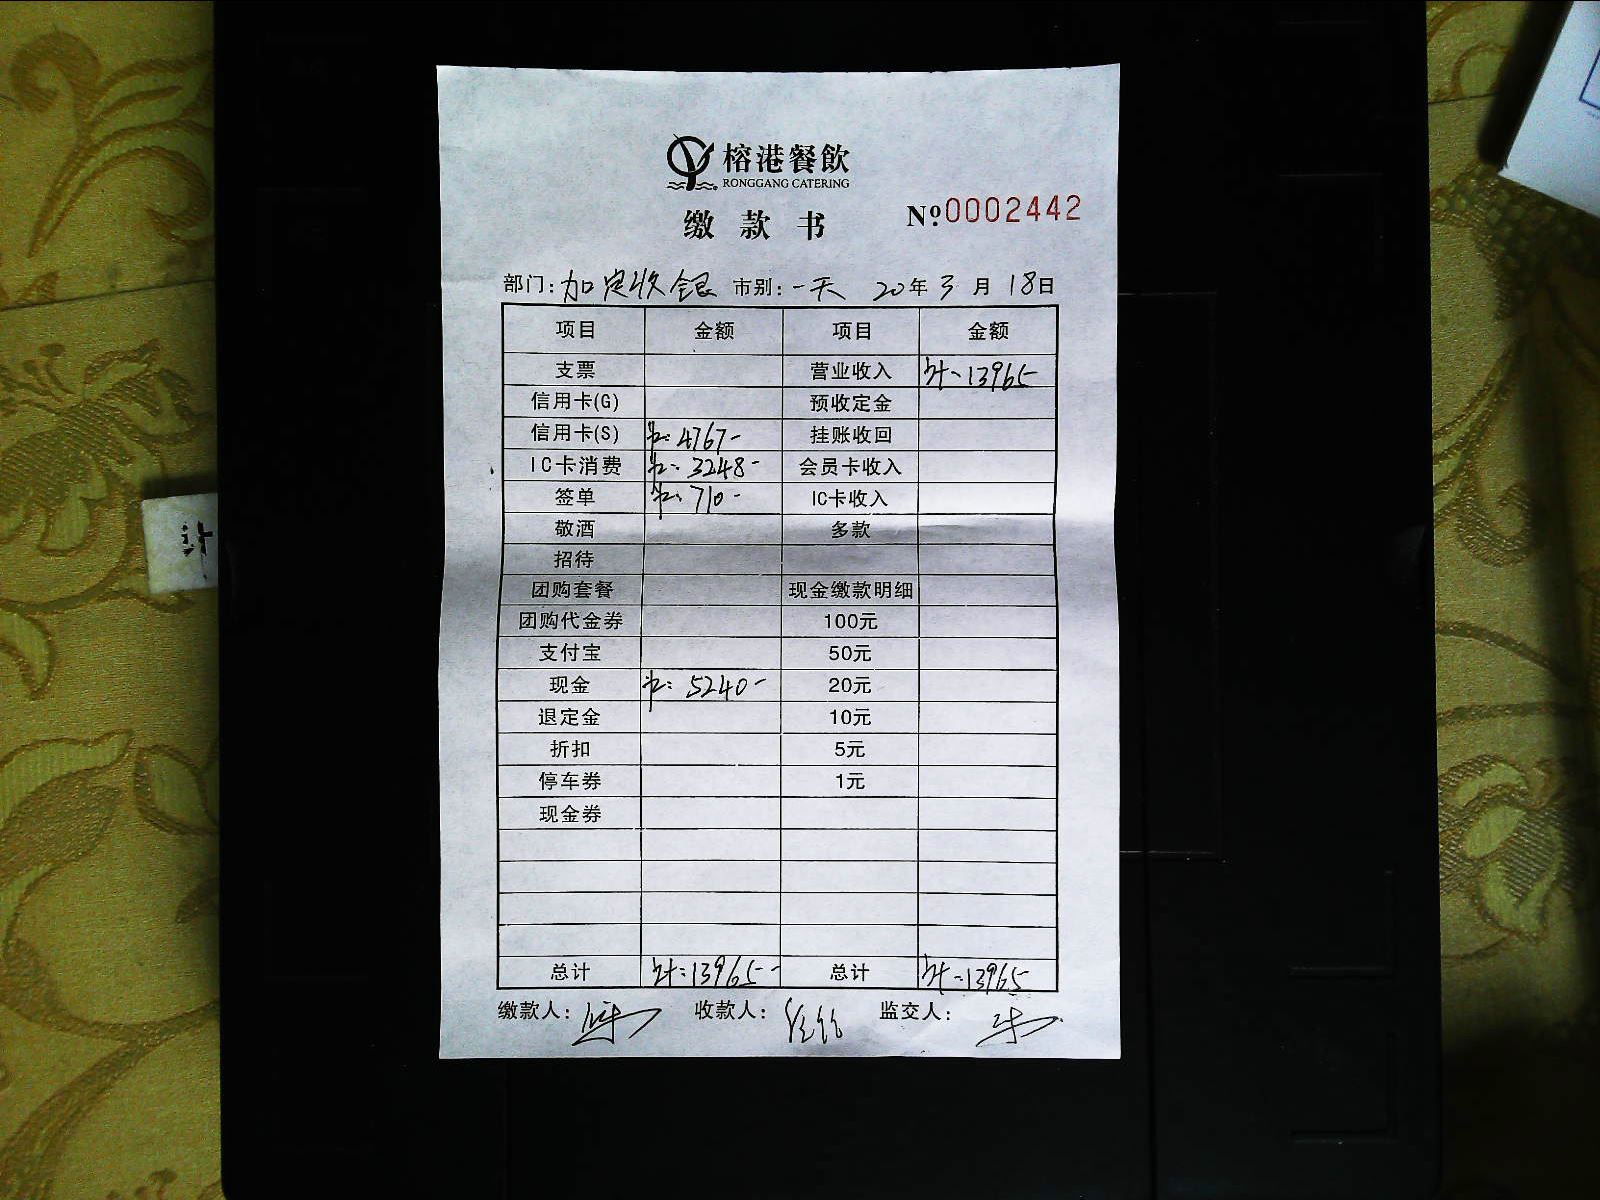 榕港餐飲
RONGGANG CATERING
缴款书
№0002442
部门: 加定收银 市别: 一天 20年3月18日
项目 金额 项目 金额
支票 营业收入 计-13965
信用卡(G) 预收定金
信用卡(S) 4767- 挂账收回
IC卡消费 3248- 会员卡收入
签单 710- IC卡收入
敬酒 多款
招待
团购套餐 现金缴款明细
团购代金券 100元
支付宝 50元
现金 5240- 20元
退定金 10元
折扣 5元
停车券 1元
现金券
总计 计:13965- 总计 计-13965
缴款人: 收款人: 监交人:
计